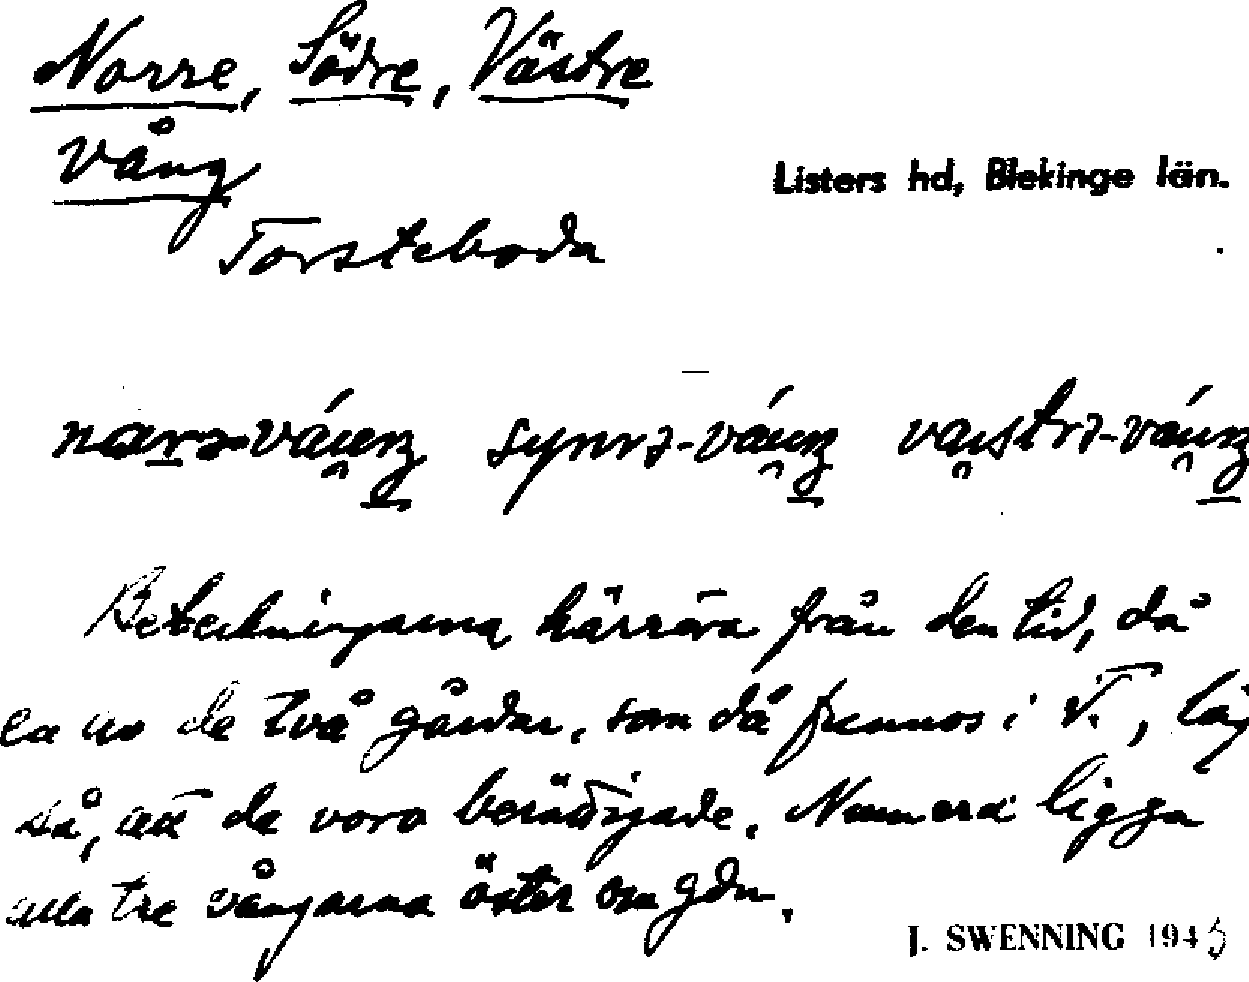 Norre, Södre, Västre
Vång
Listers hd, Blekinge län.
Torsteboda
Beteckningarna härröra från den tid, då
en av de två gårdar, som då funnos i T., låg
så, att de voro berättigade. Numera ligga
alla tre vångarna öster om gdn.
J. SWENNING 1945